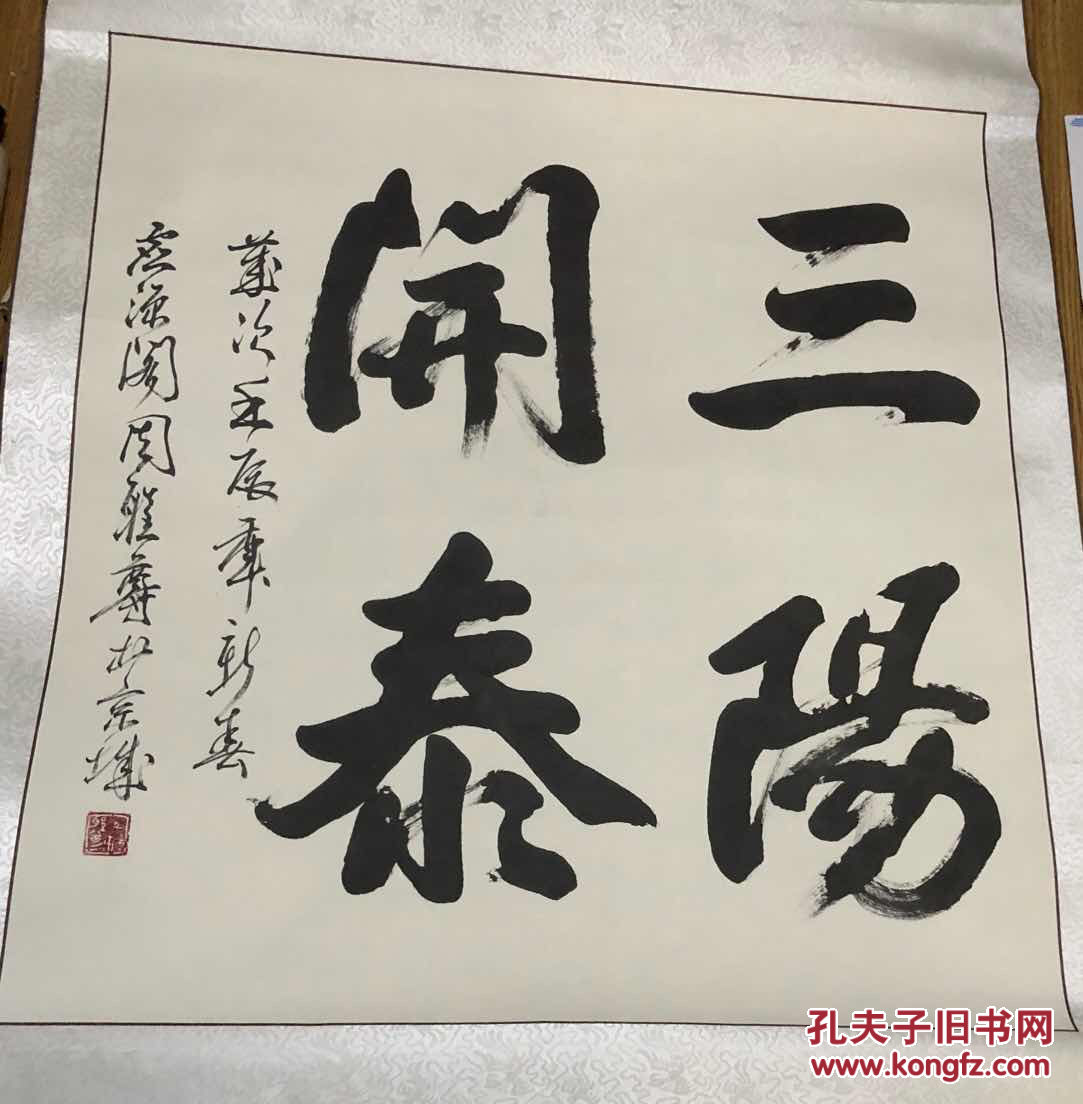 三陽
開泰
歲次壬辰年新春
周雅
京城
孔夫子旧书网
www.kongfz.com